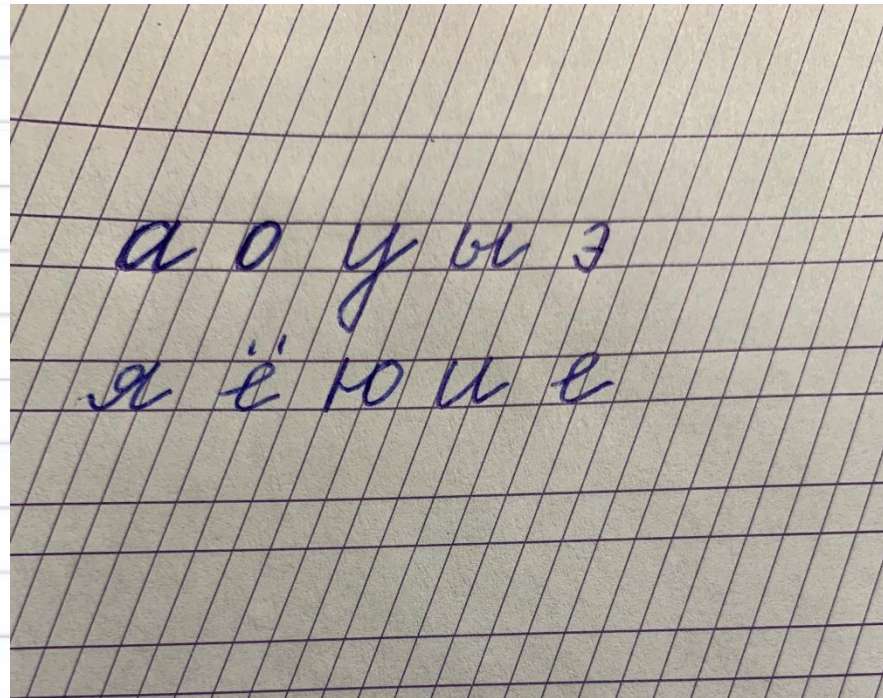 а о у ы э
я ё ю и е